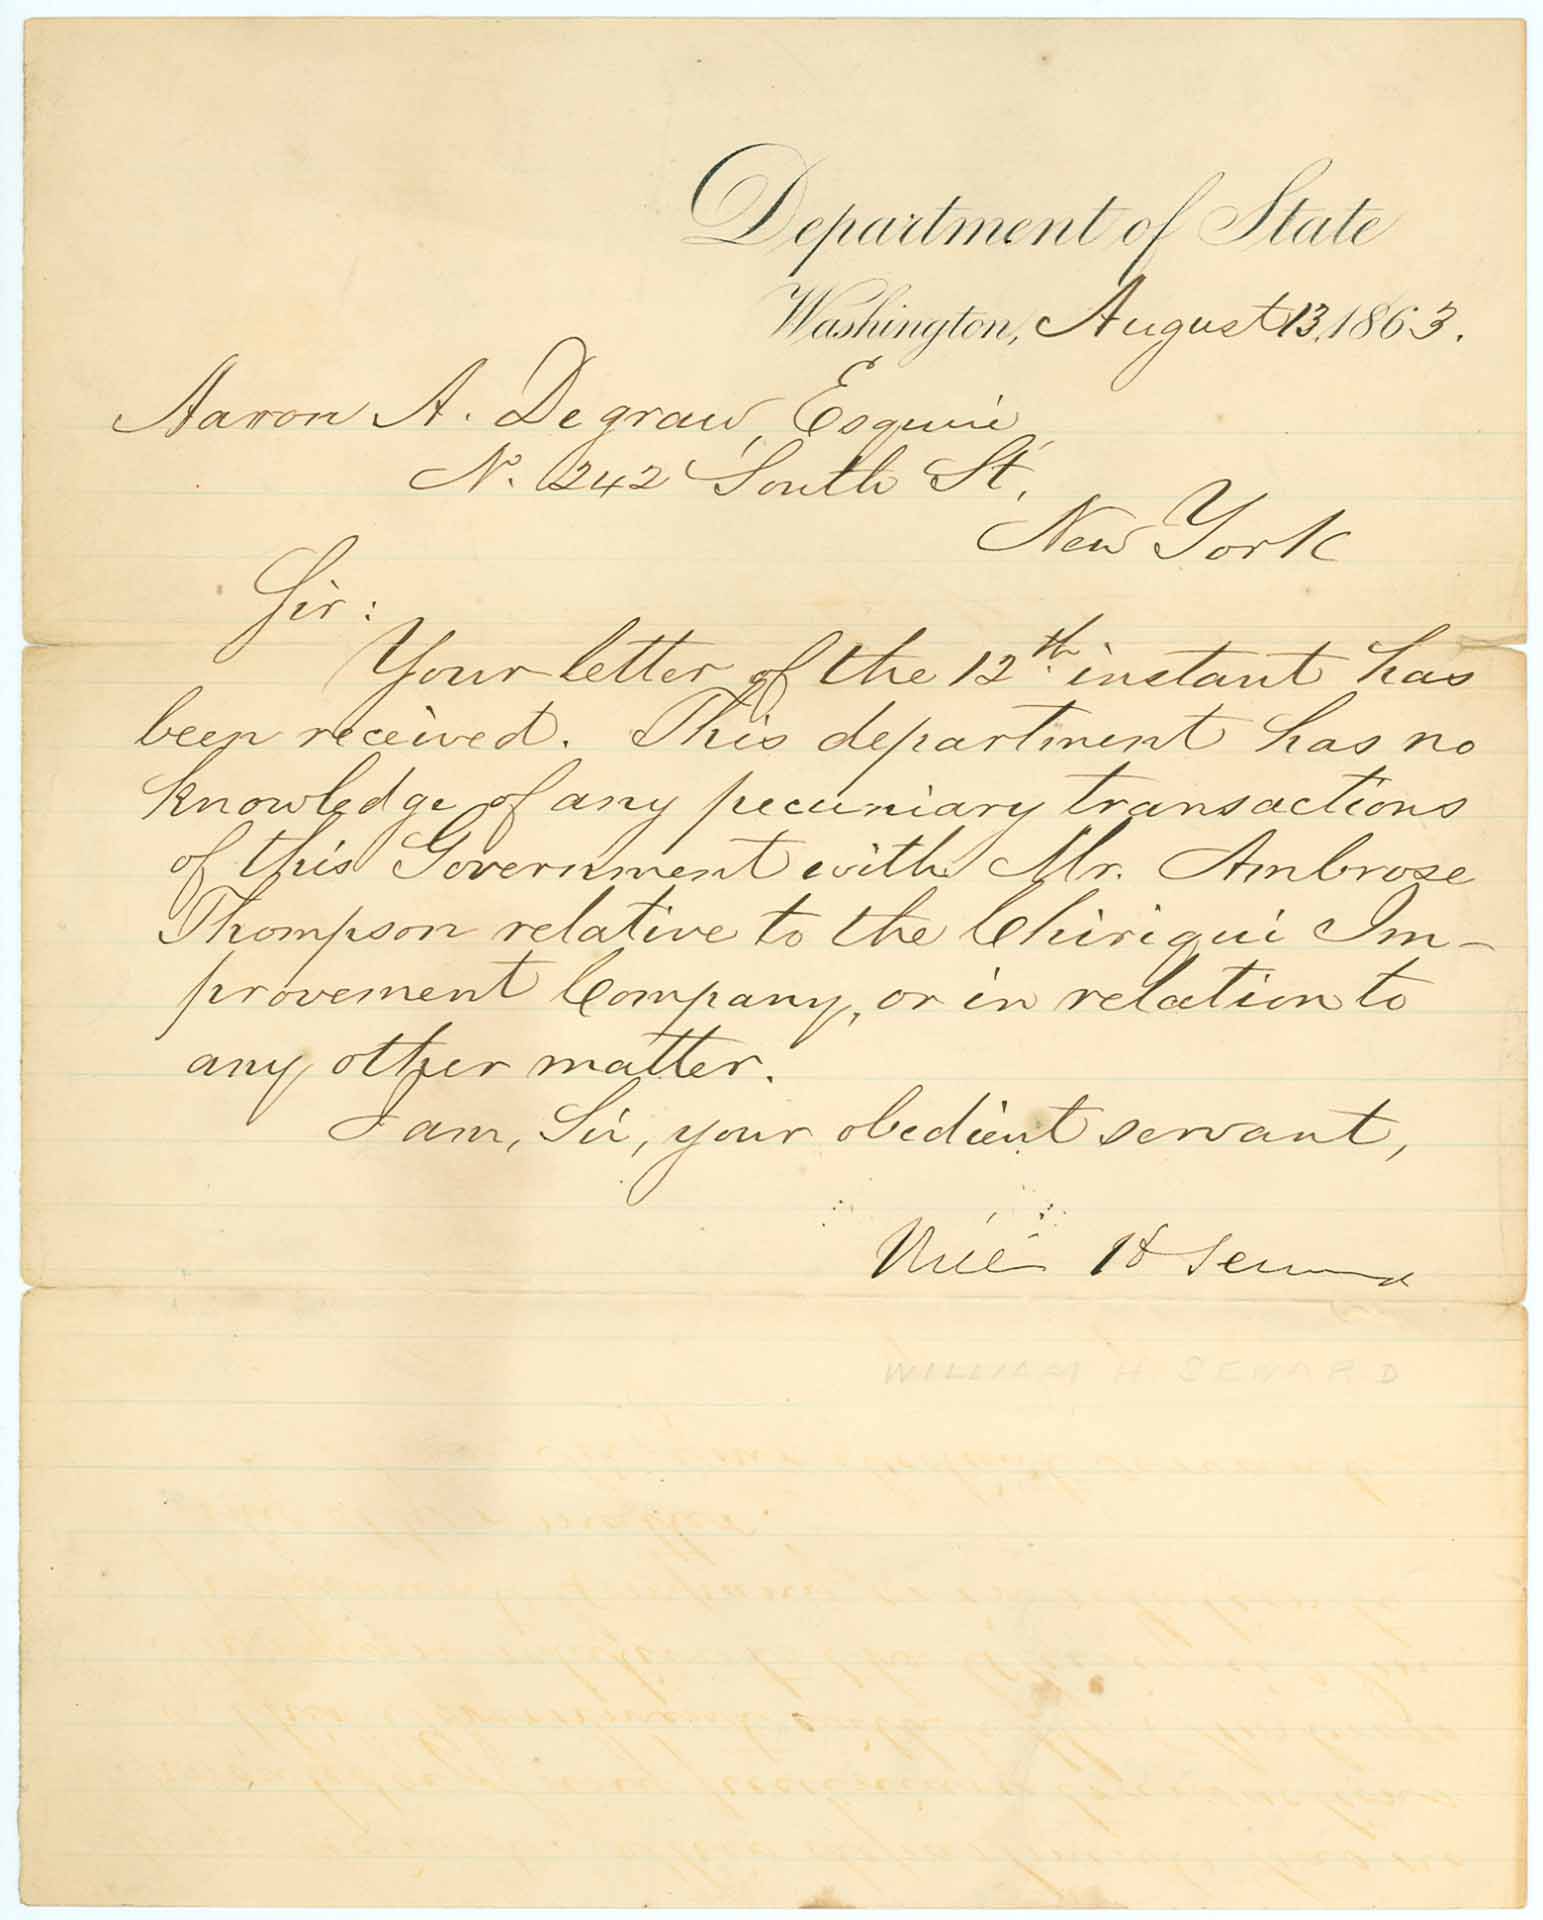 Department of State
Washington, August 13, 1863.
Aaron A. Degraw, Esquire,
No. 242 South St,
New York
Sir:
Your letter of the 12th. instant has
been received. This department has no
knowledge of any pecuniary transactions
of this Government with Mr. Ambrose
Thompson relative to the Chiriqui Im-
provement Company, or in relation to
any other matter.
I am, Sir, your obedient servant,
William H Seward
WILLIAM H SEWARD